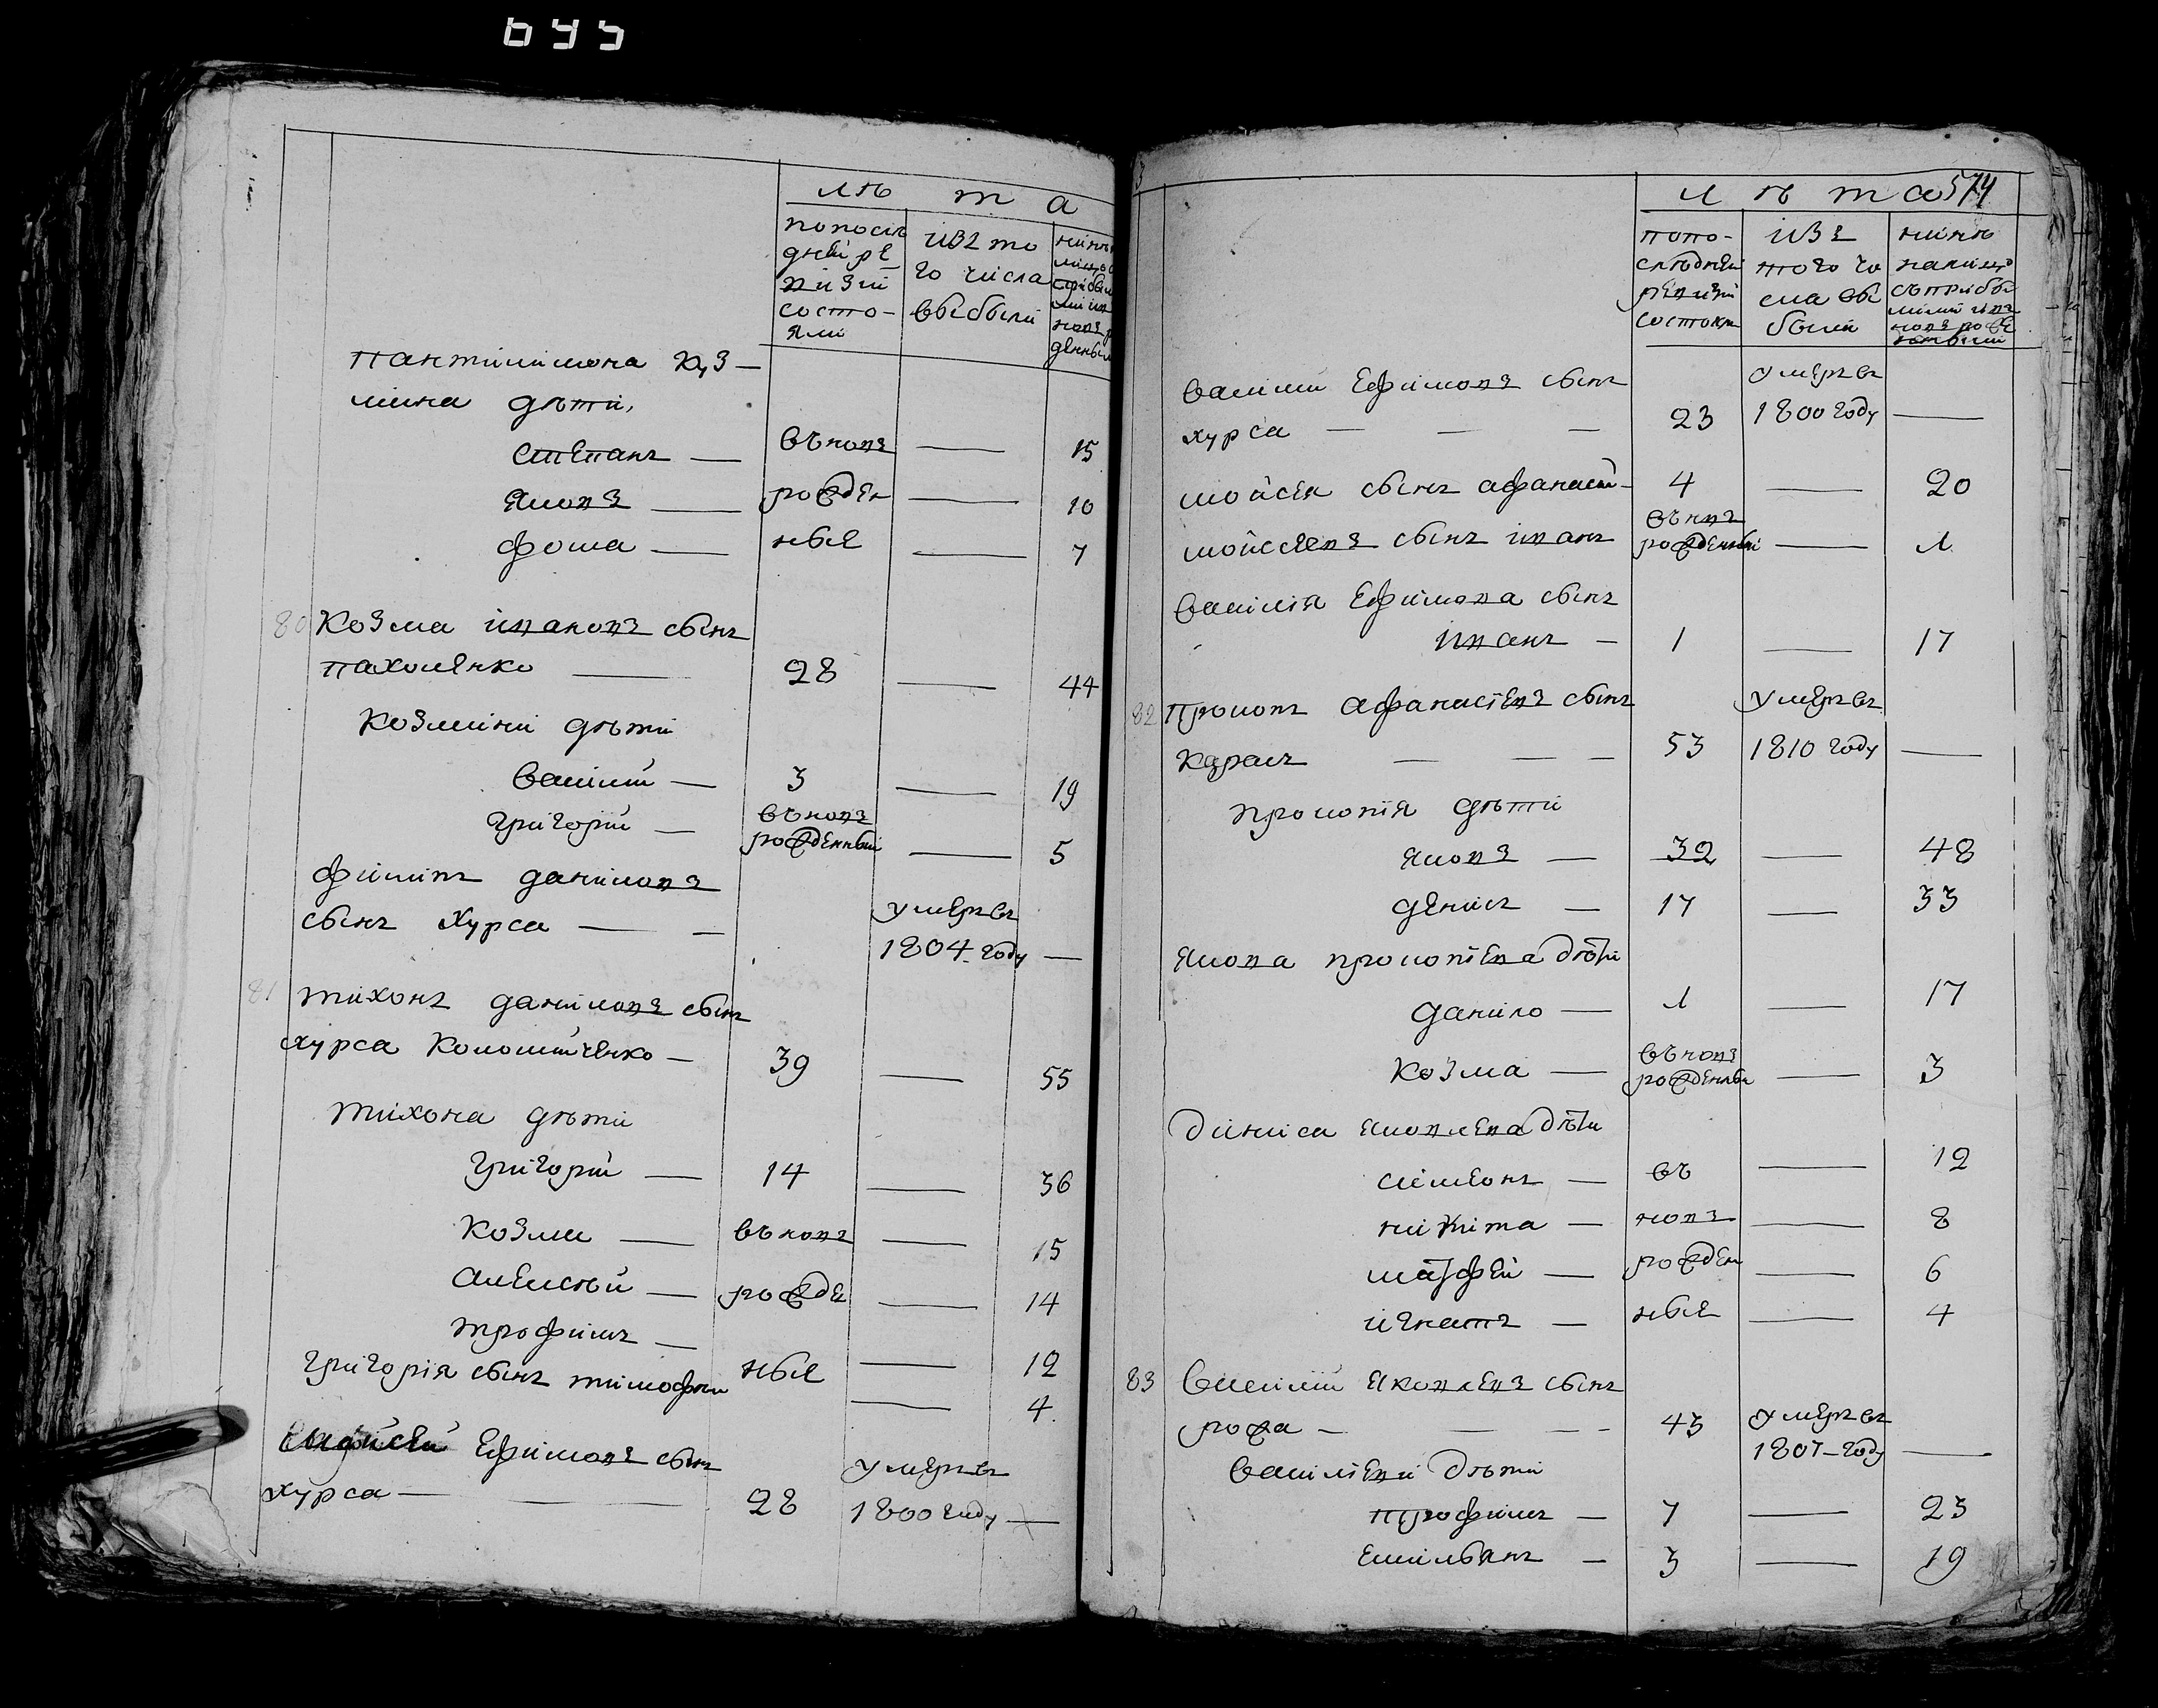 695
лѣта
по послѣ
дней ре
визіи
состо-
яли
изъ то
го числа
выбыли
Пантилимона Куз-
мина дѣти,
Степанъ — въновь — 15
Яковъ — рожден — 10
Фома — ные — 7
80 Козма Ивановъ сынъ
Пахоменко — 28 — 44
Козмины дѣти
Василий — 3 — 19
Григорій — въновь
рожденный — 5
Филипъ Даниловъ
сынъ Хурса — умеръ въ
1804 году —
81 Тихонъ Даниловъ сынъ
Хурса Коломийченко — 39 — 55
Тихона дѣти
Григорій — 14 — 36
Козма — въновь — 15
Алексѣй — рожде — 14
Трофимъ — ные — 12
Григорія сынъ Тимофей — 4
Ефимовъ сынъ
Хурса — 28 умеръ въ
1800 году —
лѣта 574
по по-
слѣдней
ревизіи
состояли
изъ
того чи
сла вы
были
нынѣ
налицо
съ прибы
лыми и въ
новь рож
Василий Ефимовъ сынъ
Хурса — — — 23 умеръ въ
1800 году —
Мойсея сынъ Афанасий — 4 — 20
Мойсеевъ сынъ Иванъ въновь
рожденный — 1
Василія Ефимова сынъ
Иванъ — 1 — 17
82 Прокопъ Афанасіевъ сынъ
Карась — — — 53 умеръ въ
1810 году —
Прокопія дѣти
Яковъ — 32 — 48
Денисъ — 17 — 33
Якова Прокопіева дѣти
Данило — 1 — 17
Козма — въновь
рожденны — 3
Дениса Яковлева дѣти
Симеонъ — въ — 12
Никита — новь — 8
Матфей — рожден — 6
Игнатъ — ные — 4
83 Василий Яковлевъ сынъ
Рожа — — — 43 умеръ въ
1807 году —
Василіевы дѣти
Трофимъ — 7 — 23
Емильянъ — 3 — 19